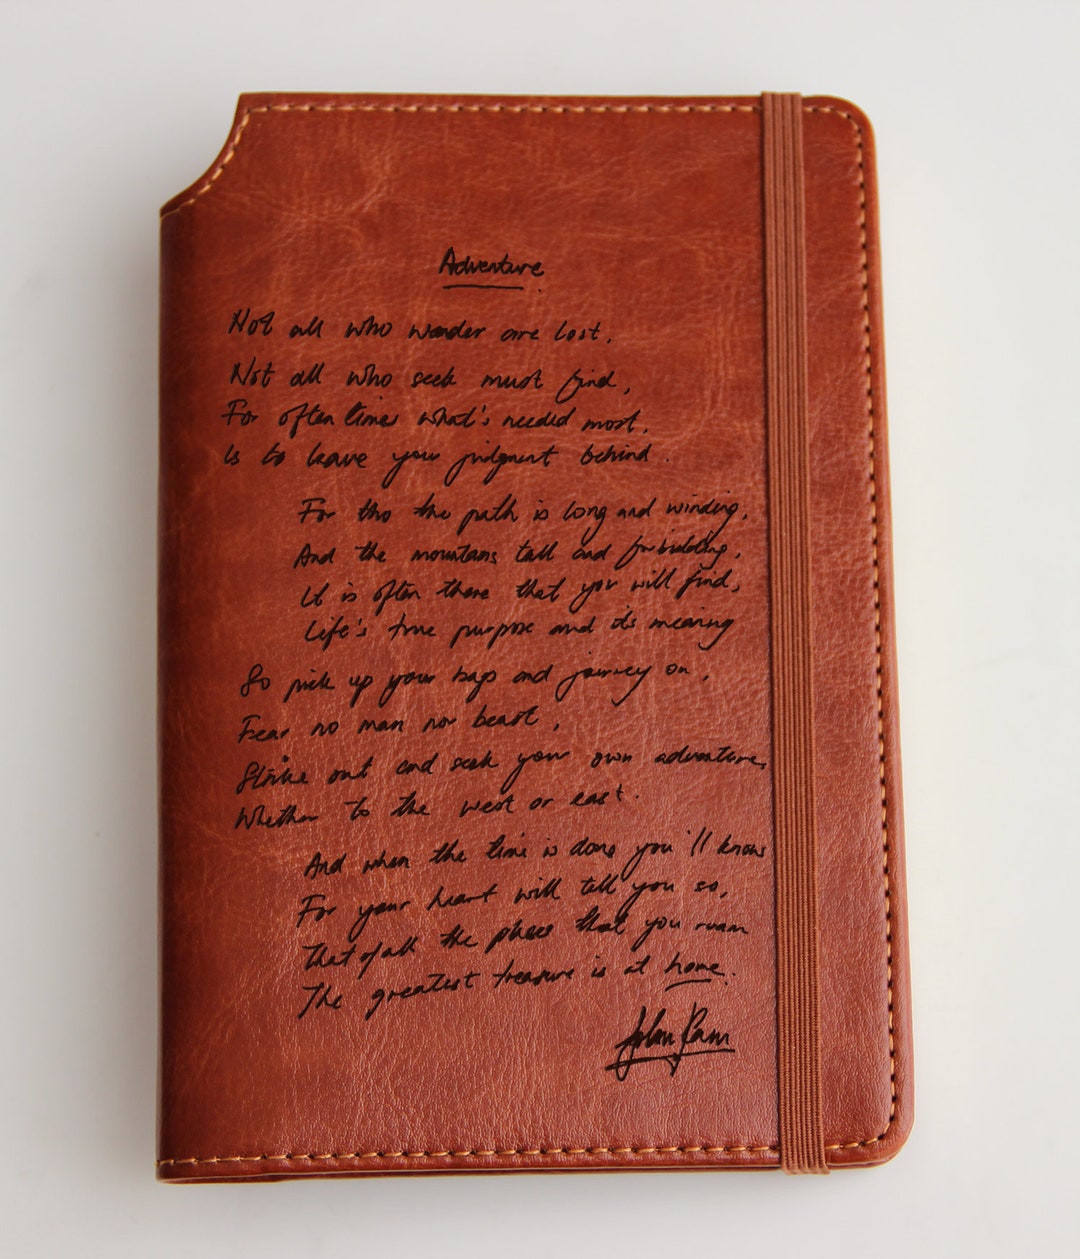 Adventure
Not all who wander are lost,
Not all who seek must find,
For often times what's needed most,
Is to leave your judgment behind.
For tho the path is long and winding,
And the mountains tall and forbidding,
It is often there that you will find,
Life's true purpose and its meaning
So pick up your bags and journey on,
Fear no man nor beast,
Strike out and seek your own adventure,
Whether to the west or east.
And when the time is done you'll know
For your heart will tell you so,
That of all the places that you roam
The greatest treasure is at home.